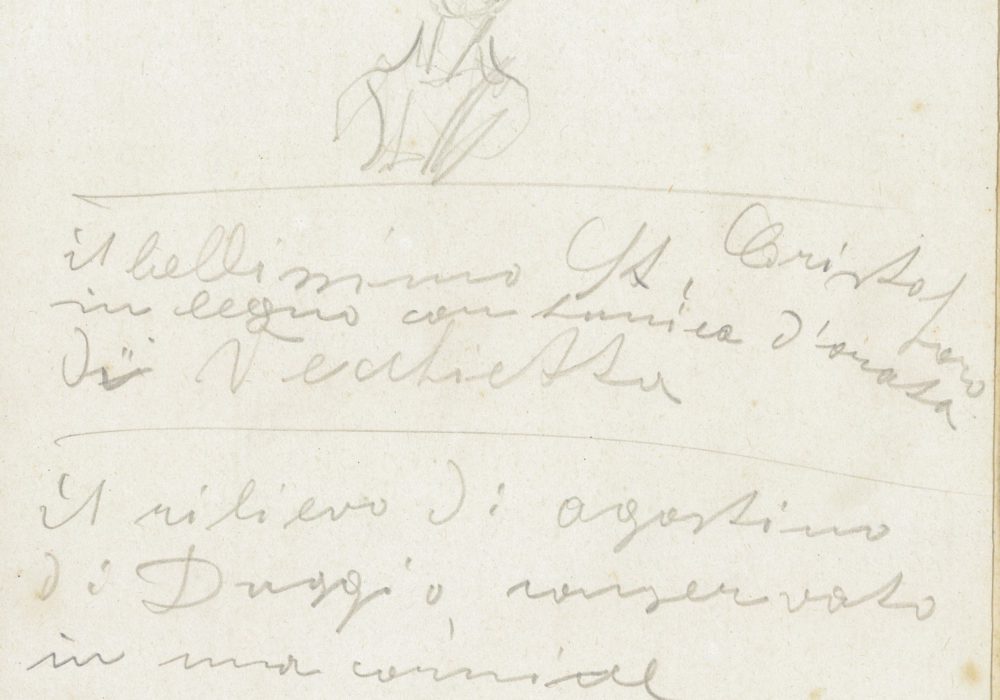 il bellissimo St. Cristoforo
in legno con tunica d'orata
di Vecchietta
il rilievo di agostino
di Duggio, conservato
in una cornice